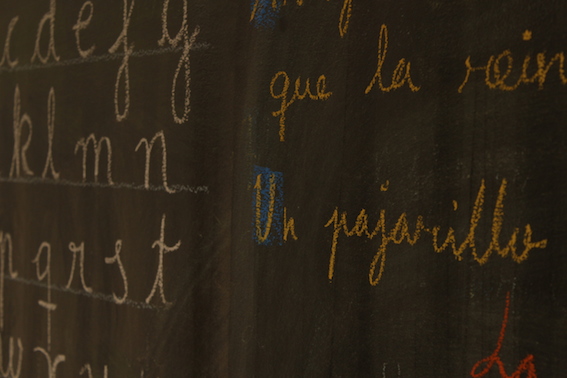 c d e f g
k l m n
q r s t
que la rein
Un pajarillo
La